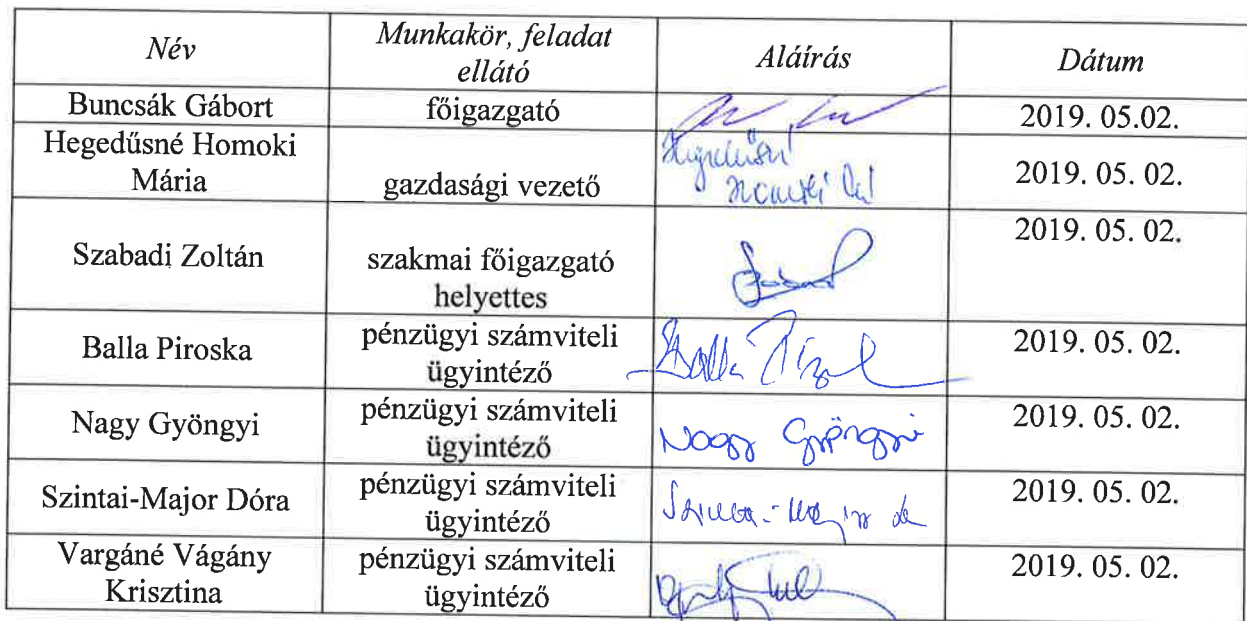 Név
Munkakör, feladat
ellátó
Aláírás
Dátum
Buncsák Gábort
főigazgató
2019. 05.02.
Hegedűsné Homoki
Mária
gazdasági vezető
Hegedűsné
Homoki
2019. 05. 02.
Szabadi Zoltán
szakmai főigazgató
helyettes
2019. 05. 02.
Balla Piroska
pénzügyi számviteli
ügyintéző
Balla
2019. 05. 02.
Nagy Gyöngyi
pénzügyi számviteli
ügyintéző
Nagy Gyöngyi
2019. 05. 02.
Szintai-Major Dóra
pénzügyi számviteli
ügyintéző
2019. 05. 02.
Vargáné Vágány
Krisztina
pénzügyi számviteli
ügyintéző
2019. 05. 02.